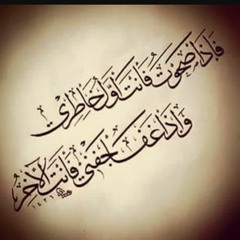 فَإِذَا صَحَوْتُ فَأَنْتَ أَوَّلُ خَاطِرِي
وَإِذَا غَفَا جَفْنِي فَأَنْتَ الْآخِرُ